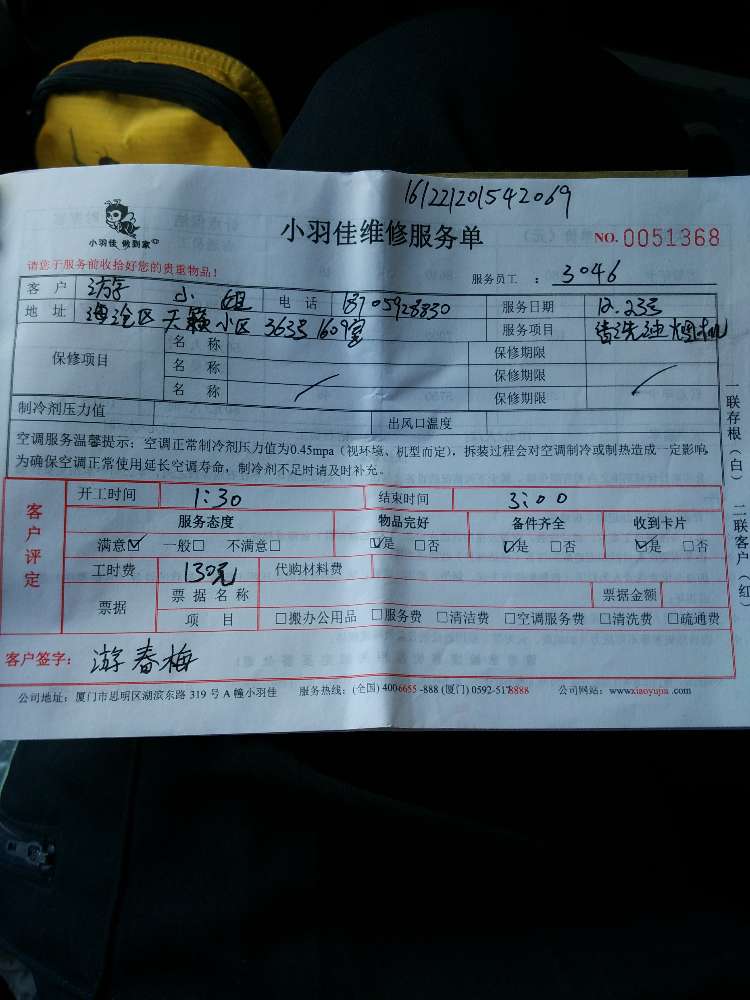 161221201542069
小羽佳 做到家
小羽佳维修服务单
NO. 0051368
请您于服务前收拾好您的贵重物品!
服务员工 : 3046
客户 游 小姐 电话 18705928830 服务日期 12.23号
地址 海沧区天籁小区 363号1609室 服务项目 清洗油烟机
保修项目 名称 保修期限
名称 保修期限
名称 保修期限
制冷剂压力值 出风口温度
空调服务温馨提示: 空调正常制冷剂压力值为0.45mpa (视环境、机型而定), 拆装过程会对空调制冷或制热造成一定影响,
为确保空调正常使用延长空调寿命, 制冷剂不足时请及时补充。
客户评定
开工时间 1:30 结束时间 3:00
服务态度 物品完好 备件齐全 收到卡片
满意☑ 一般□ 不满意□ ☑是 □否 ☑是 □否 ☑是 □否
工时费 130元 代购材料费
票据 票据名称 票据金额
项目 □搬办公用品 □服务费 □清洁费 □空调服务费 □清洗费 □疏通费
客户签字: 游春梅
公司地址: 厦门市思明区湖滨东路 319 号 A 幢小羽佳 服务热线: (全国) 4006655 -888 (厦门) 0592-5178888 公司网站: www.xiaoyujia .com
一联存根(白) 二联客户(红)